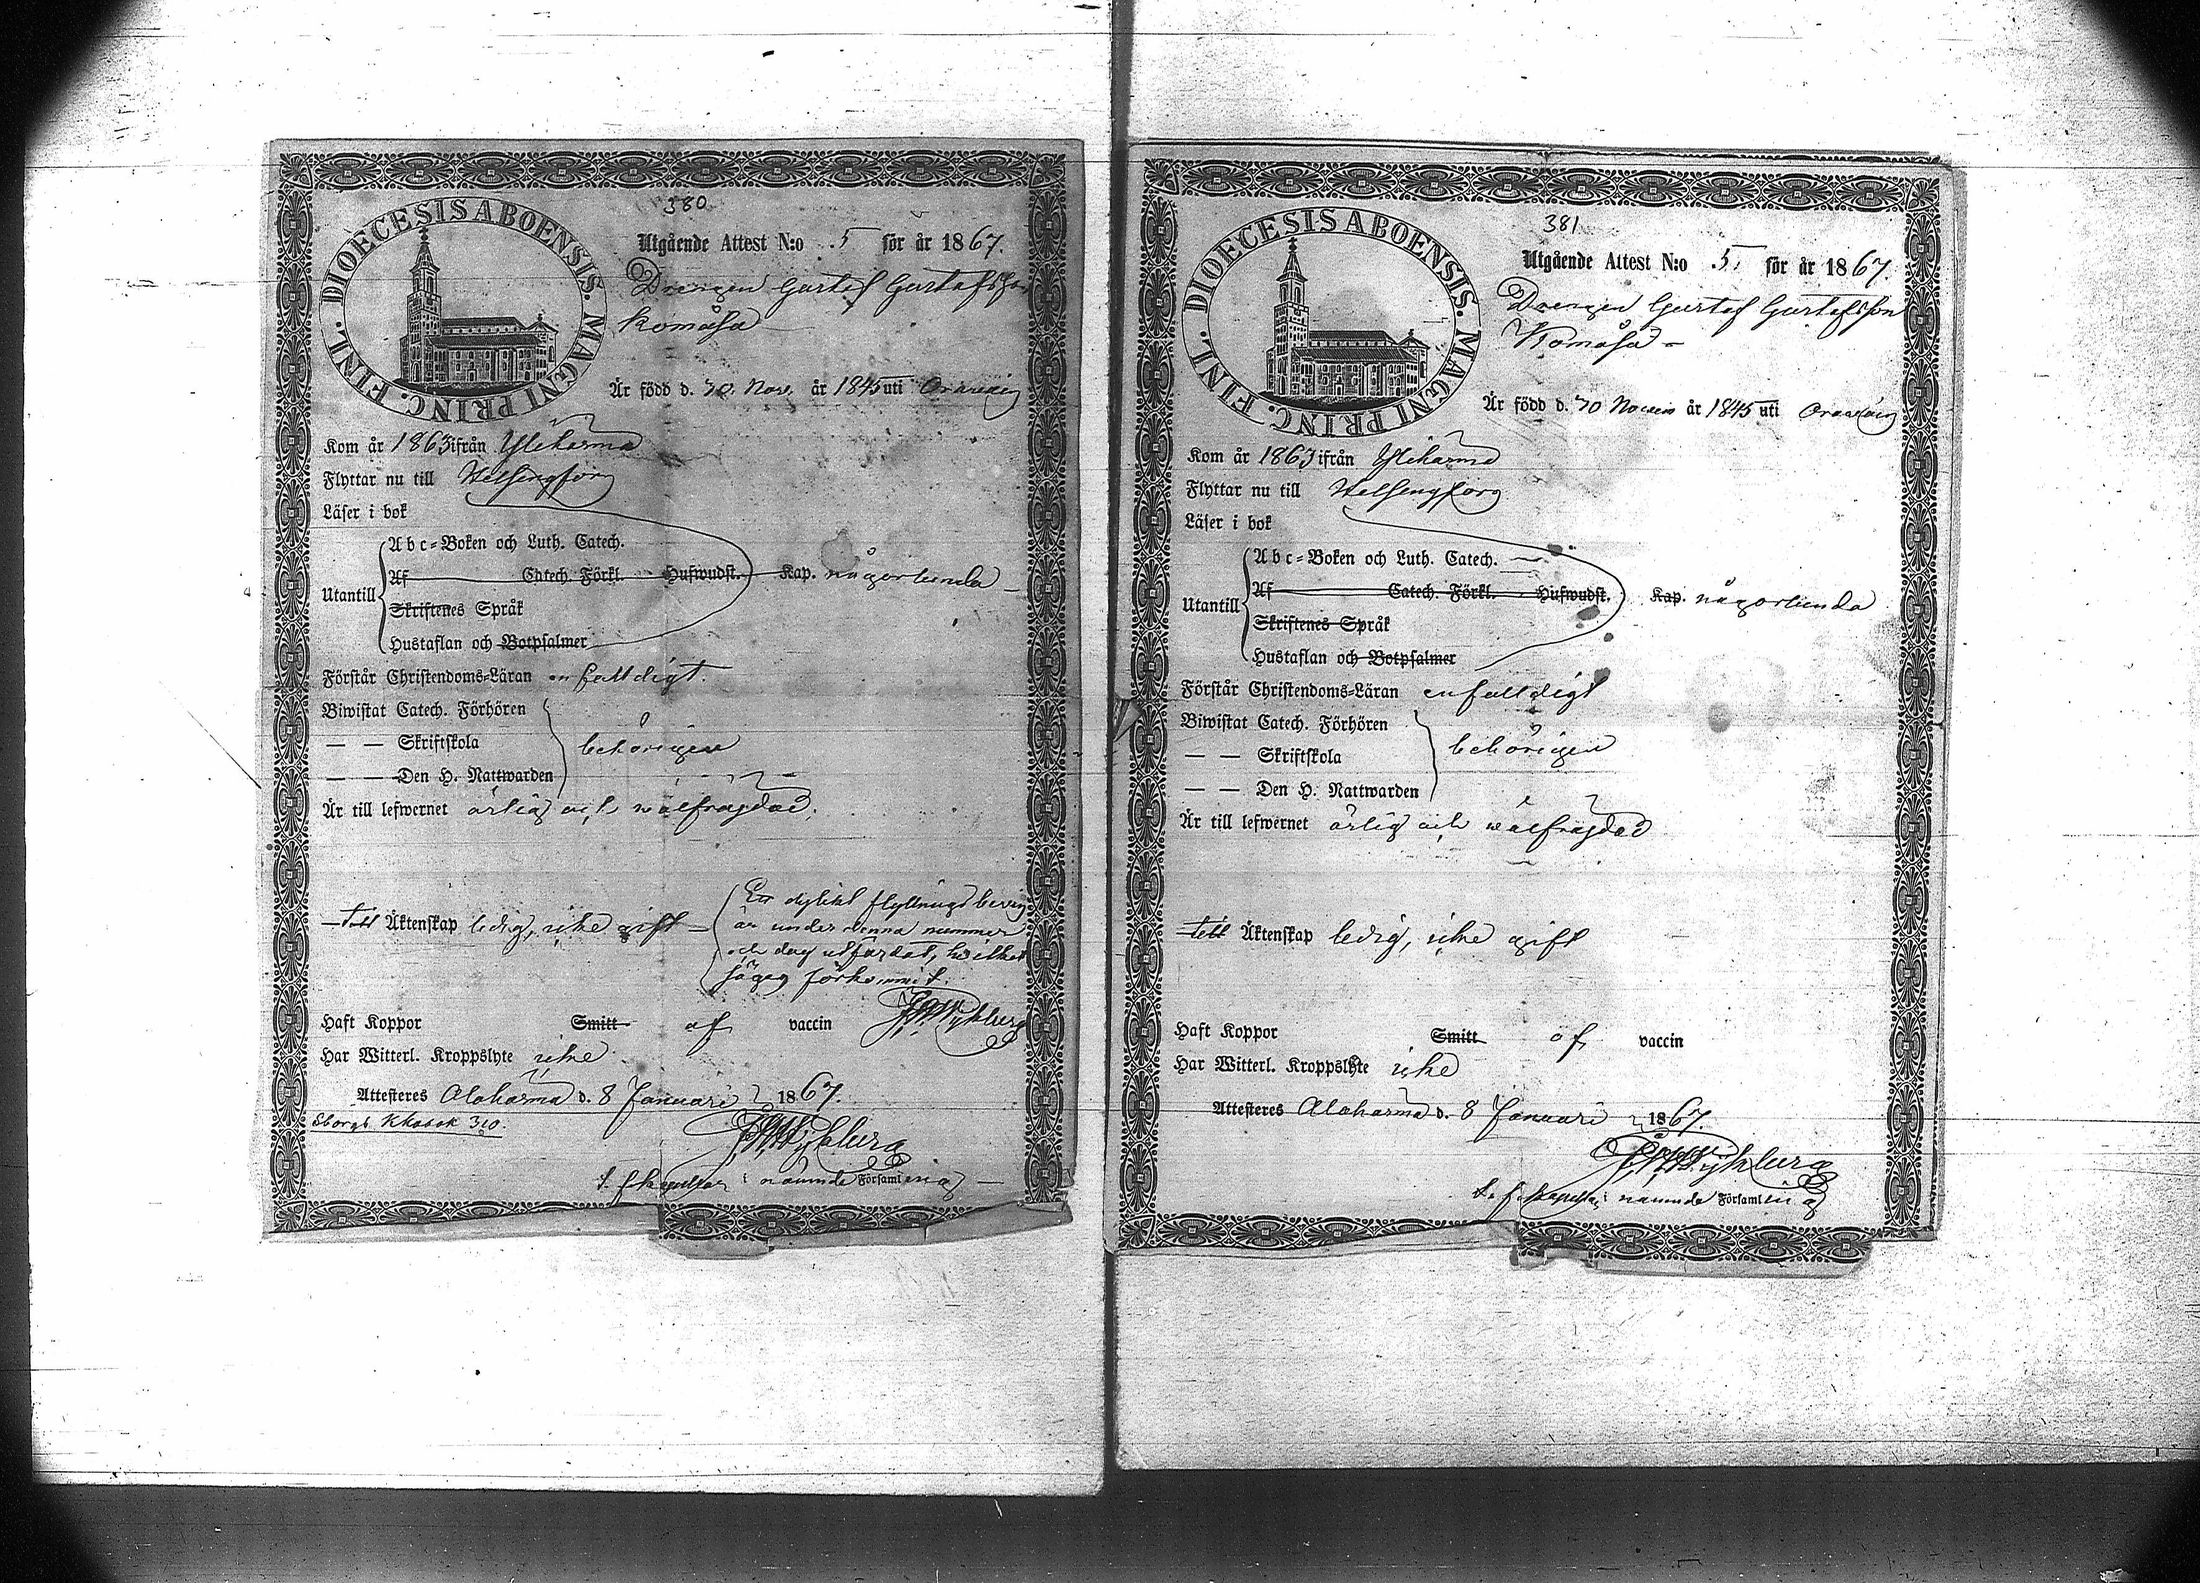 380
DIOECESIS ABOENSIS. MAGNI PRINC. FINL.
Utgående Attest N:o 5 för år 1867.
Drengen Gustaf Gustafsson
Komåsa
Är född d. 30 Nov. år 1845 uti Oravais
Kom år 1863 ifrån Ylihärmä
Flyttar nu till Helsingfors
Läser i bok
Abc-Boken och Luth. Catech.
Utantill Af Catech. Förkl. Hufwudst. Kap. någorlunda
Skriftenes Språk
Hustaflan och Botpsalmer
Förstår Christendoms-Läran enfalldigt.
Biwistat Catech. Förhören
— — Skriftskola behörigen
— — Den H. Nattwarden
Är till lefwernet ärlig och wälfrägdad.
En dylikt flyttningsbevis
till Äktenskap ledig, icke gift —
är under denna nummer
och dag utfärdat, hvilket
säges förkommit.
Haft Koppor Smitt af vaccin
Har Witterl. Kroppslyte icke
Attesteres Alahärmä d. 8 Januari 1867.
310.
i nämnde Församling
381
DIOECESIS ABOENSIS. MAGNI PRINC. FINL.
Utgående Attest N:o 5. för år 1867.
Drengen Gustaf Gustafsson
Komåsa —
Är född d. 30 Novem år 1845 uti Oravais
Kom år 1863 ifrån Ylihärmä
Flyttar nu till Helsingfors
Läser i bok
Abc-Boken och Luth. Catech.
Utantill Af Catech. Förkl. Hufwudst. Kap. någorlunda
Skriftenes Språk
Hustaflan och Botpsalmer
Förstår Christendoms-Läran enfalldigt
Biwistat Catech. Förhören
— — Skriftskola behörigen
— — Den H. Nattwarden
Är till lefwernet ärlig och wälfrägdad
till Äktenskap ledig, icke gift
Haft Koppor Smitt af vaccin
Har Witterl. Kroppslyte icke
Attesteres Alahärmä d. 8 Januari 1867.
i nämnde Församling